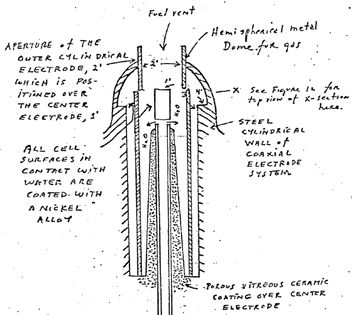 Fuel vent
Hemispherical metal
Dome for gas
APERTURE of THE
OUTER CYLINDRICAL
ELECTRODE, 2'
WHICH IS POS-
ITIONED OVER
THE CENTER
ELECTRODE, 1'
2'
1'
X See Figure 1c for
top view of X-section
here.
H2O
H2O
STEEL
CYLINDRICAL
WALL of
COAXIAL
ELECTRODE
SYSTEM
ALL CELL
SURFACES IN
CONTACT WITH
WATER ARE
COATED WITH
A NICKEL
ALLOY
POROUS VITREOUS CERAMIC
COATING OVER CENTER
ELECTRODE